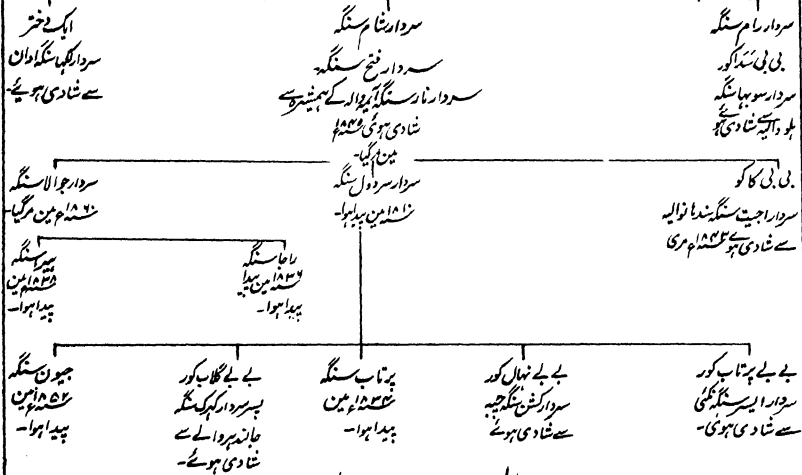 سردار رام سنگہ
بی بی سدا کور
سردار سوبہا سنگہ
ہلووالیہ سے شادی ہو
سردار شام سنگہ
سردار فتح سنگہ۔
سردار نار سنگہ آہیہ والہ کے ہمشیرہ سے
شادی ہوئی ۱۸۴۵ء
مین مرگیا۔
ایک دختر
سردار لکہا سنگہ ادان
سے شادی ہوئے۔
بی بی کاکو
سردار اجیت سنگہ سندہانوالیہ
سے شادی ہوئے ۱۸۴۳ء مری
سردار سردول سنگہ
۱۸۱۰ء مین پیدا ہوا۔
سردار جوالا سنگہ
۱۸۶۰ء مین مرگیا۔
راجا سنگہ
۱۸۳۶ء مین پیدا
پیدا ہوا۔
ہیرا سنگہ
۱۸۳۸ء مین
پیدا ہوا۔
بے بے پرتاب کور
سردار ایسر سنگہ نکئی
سے شادی ہوئی۔
بے بے نہال کور
سردار کشن سنگہ چیہ
سے شادی ہوئے
پرتاب سنگہ
۱۸۳۴ء مین
پیدا ہوا۔
بے بے گلاب کور
پسر سردار کہرک سنگہ
جالندہر والے سے
شادی ہوئے۔
جیون سنگہ
۱۸۵۲ء مین
پیدا ہوا۔